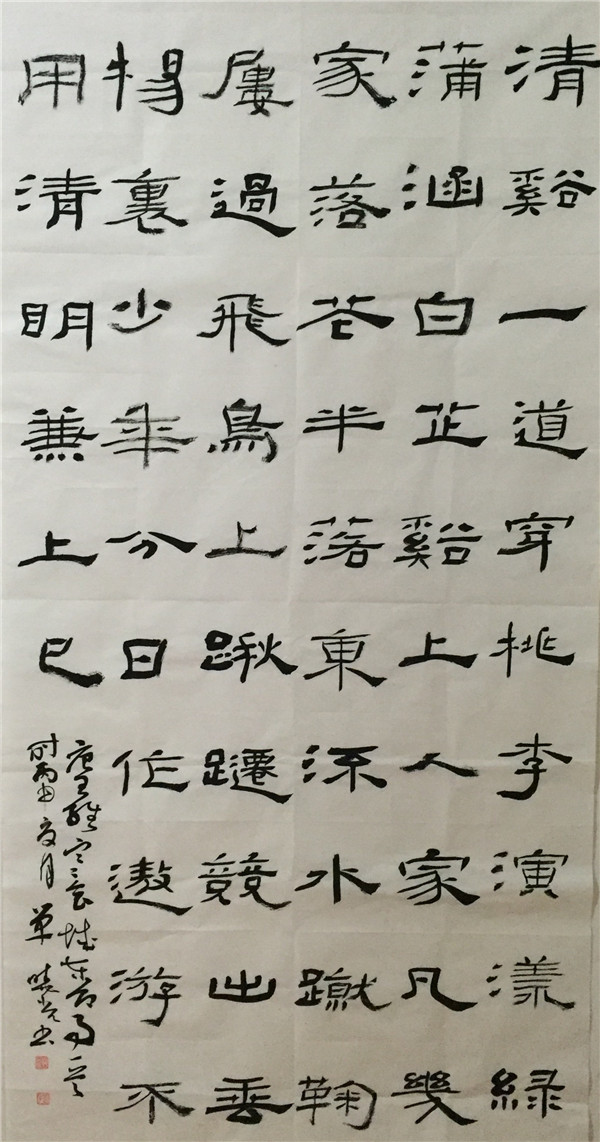 清谿一道穿桃李演漾綠
蒲涵白芷谿上人家凡幾
家落花半落東流水蹴鞠
屢過飛鳥上蹴躚競出垂
楊裏少年分日作遨游不
用清明兼上巳
唐王維寒食城東即事
時丙申夏月單曉光書